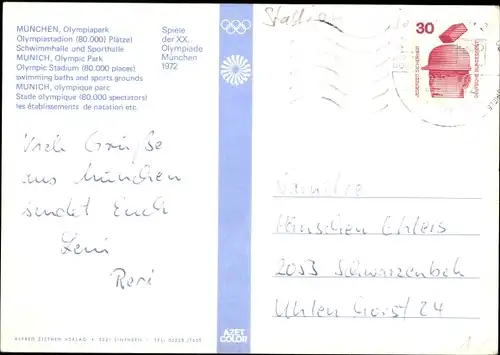 MÜNCHEN, Olympiapark
Olympiastadion (80.000) Plätze)
Schwimmhalle und Sporthalle
MUNICH, Olympic Park
Olympic Stadium (80.000 places)
swimming baths and sports grounds
MUNICH, olympique parc
Stade olympique (80.000 spectators)
les établissements de natation etc.
Spiele
der XX.
Olympiade
München
1972
30
JEDERZEIT SICHERHEIT
DEUTSCHE BUNDESPOST
Viele Grüße
aus München
sendet Euch
Leni
Reri
Familie
Hinschen Ehlers
2053 Schwarzenbek
Uhlenhorst 24
AZET
COLOR
ALFRED ZETHEN VERLAG • 5221 SINTHERN • TEL. 02238/7655